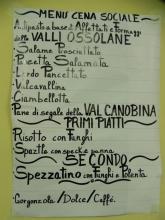 MENU CENA SOCIALE
Antipasto a base di Affettati e Formaggi
delle VALLI OSSOLANE
Salame Prosciuttato
Pancetta Salamata
Lardo Pancettato
Valcavallina
Giambellotta
Pane di segale della VAL CANOBINA
PRIMI PIATTI
Risotto con Funghi
Spaztle con speck e panna
SECONDO
Spezzatino con funghi e Polenta
Gorgonzola /Dolce/ Caffé.